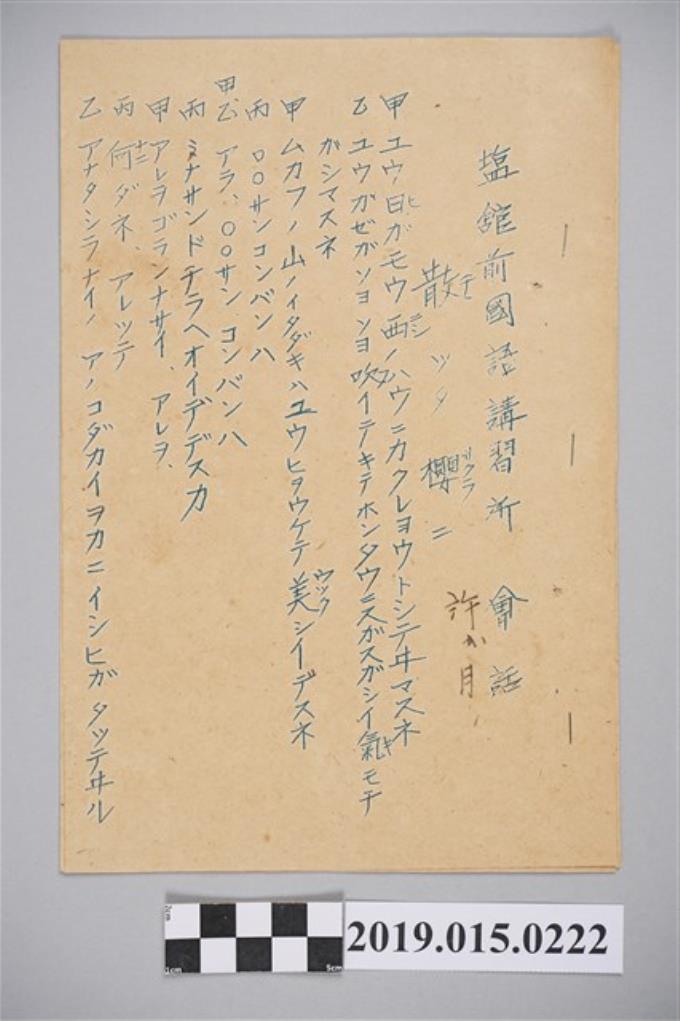 塩舘前國語講習所 會話
許 月
散ッタ櫻ニ
チ
サクラ
甲 ユウ日ガモウ西ノハウニカクレヨウトシテヰマスネ
ヒ
ニシ
乙 ユウガゼガソヨソヨ吹イテキテホンタウニスガスガシイ氣モチ
フ
キ
ガシマスネ
甲 ムカフノ山ノイタダキハユウヒヲウケテ美シイデスネ
ウツク
丙 〇〇サンコンバンハ
甲、乙 アラ、〇〇サン コンバンハ
丙 ミナサンドチラヘオイデデスカ
甲 アレヲゴランナサイ、アレヲ、
丙 何ダネ、アレッテ
ナニ
乙 アナタシラナイノ アノコダカイヲカニイシヒガタッテヰル
2cm
1cm
5cm
2019.015.0222